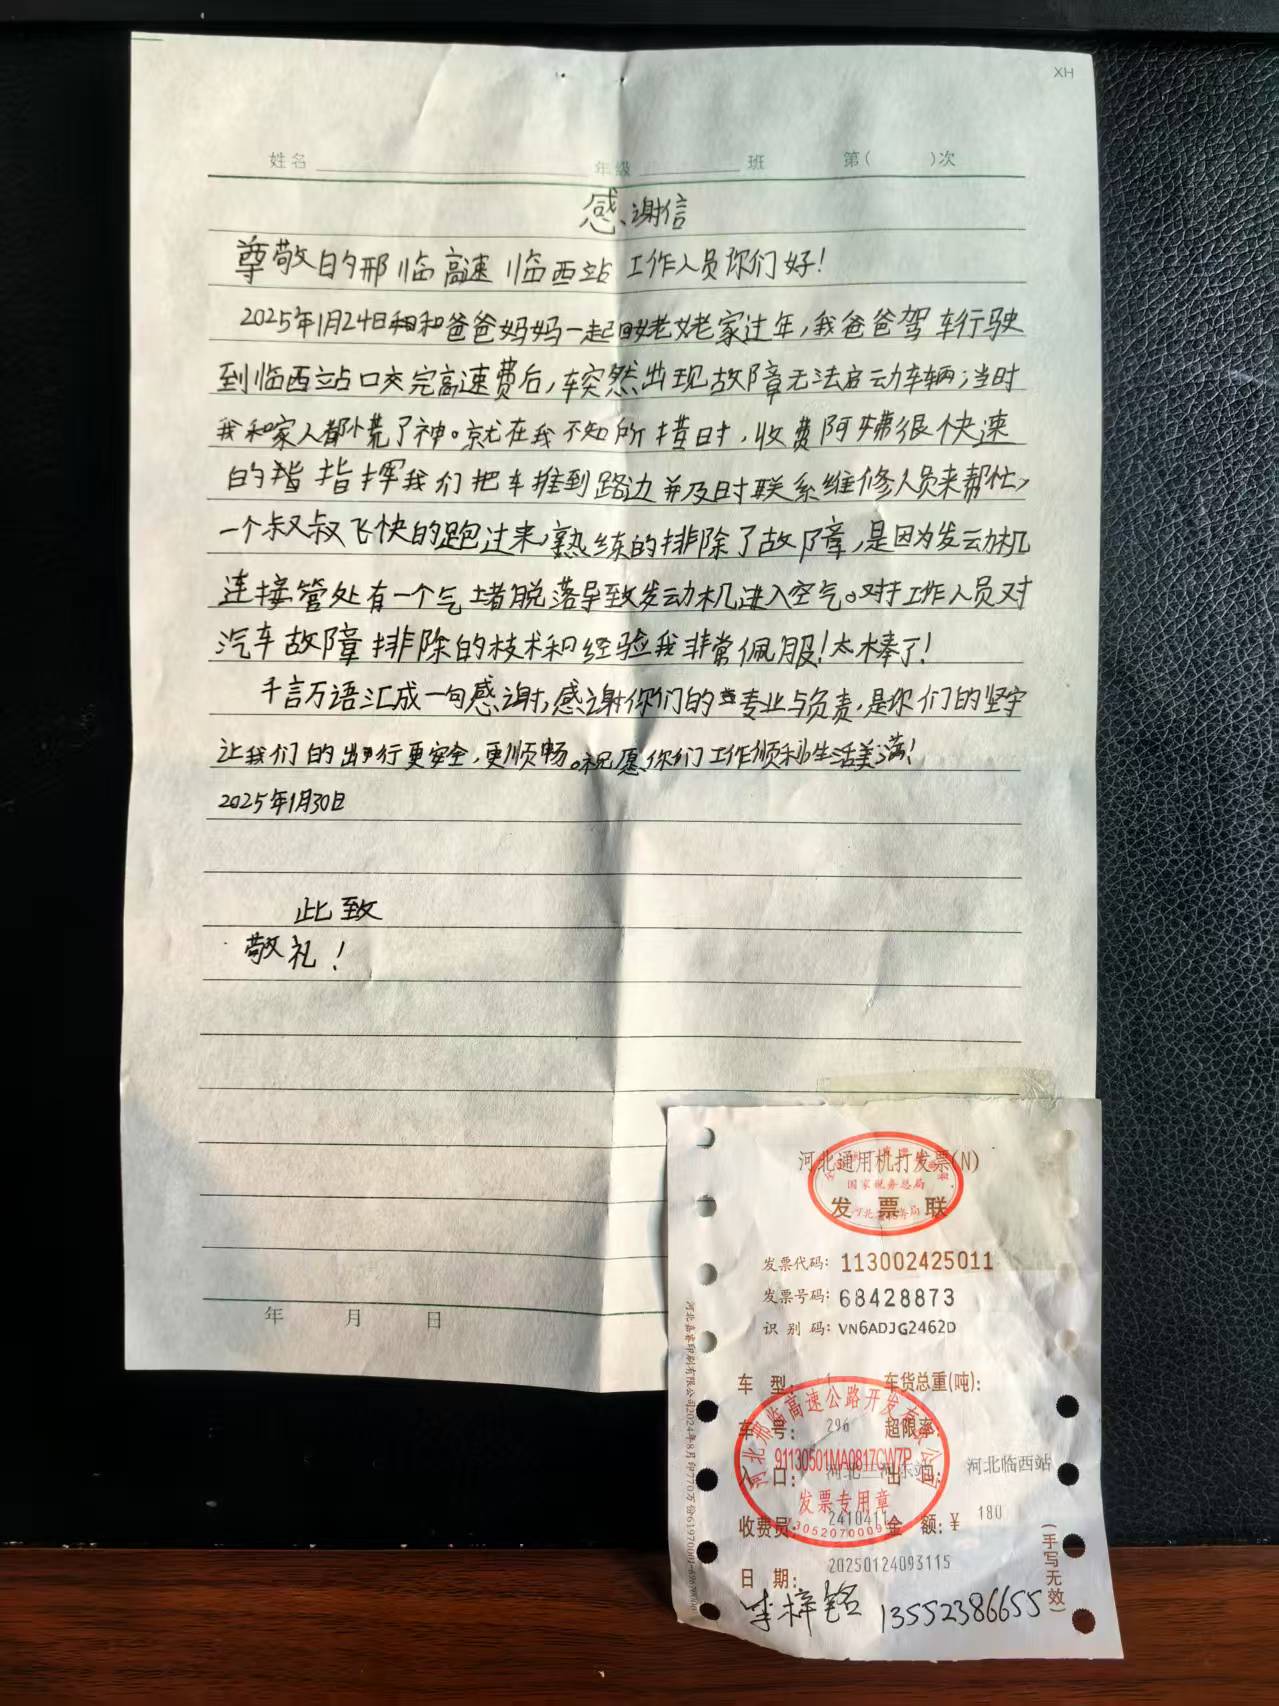 XH
姓名 年级 班 第( )次
感谢信
尊敬的邢临高速临西站工作人员你们好！
2025年1月24日和爸爸妈妈一起回姥姥家过年,我爸爸驾车行驶
到临西站口交完高速费后,车突然出现故障无法启动车辆;当时
我和家人都慌了神。就在我不知所措时,收费阿姨很快速
的指挥我们把车推到路边并及时联系维修人员来帮忙,
一个叔叔飞快的跑过来,熟练的排除了故障,是因为发动机
连接管处有一个气堵脱落导致发动机进入空气。对于工作人员对
汽车故障排除的技术和经验我非常佩服!太棒了!
千言万语汇成一句感谢,感谢你们的专业与负责,是你们的坚守
让我们的出行更安全,更顺畅。祝愿你们工作顺利生活美满!
2025年1月30日
此致
敬礼!
年 月 日
河北通用机打发票(N)
国家税务总局
发票联
发票代码: 113002425011
发票号码: 68428873
识别码: VN6ADJG2462D
车型: 1 车货总重(吨):
车号: 296 超限率:
入口: 河北 出口: 河北临西站
收费员: 2410411 金额:¥ 180
日期: 20250124093115
李梓铭 13552386655
(手写无效)
河北邢临高速公路开发有限公司
91130501MA0817CW7P
发票专用章